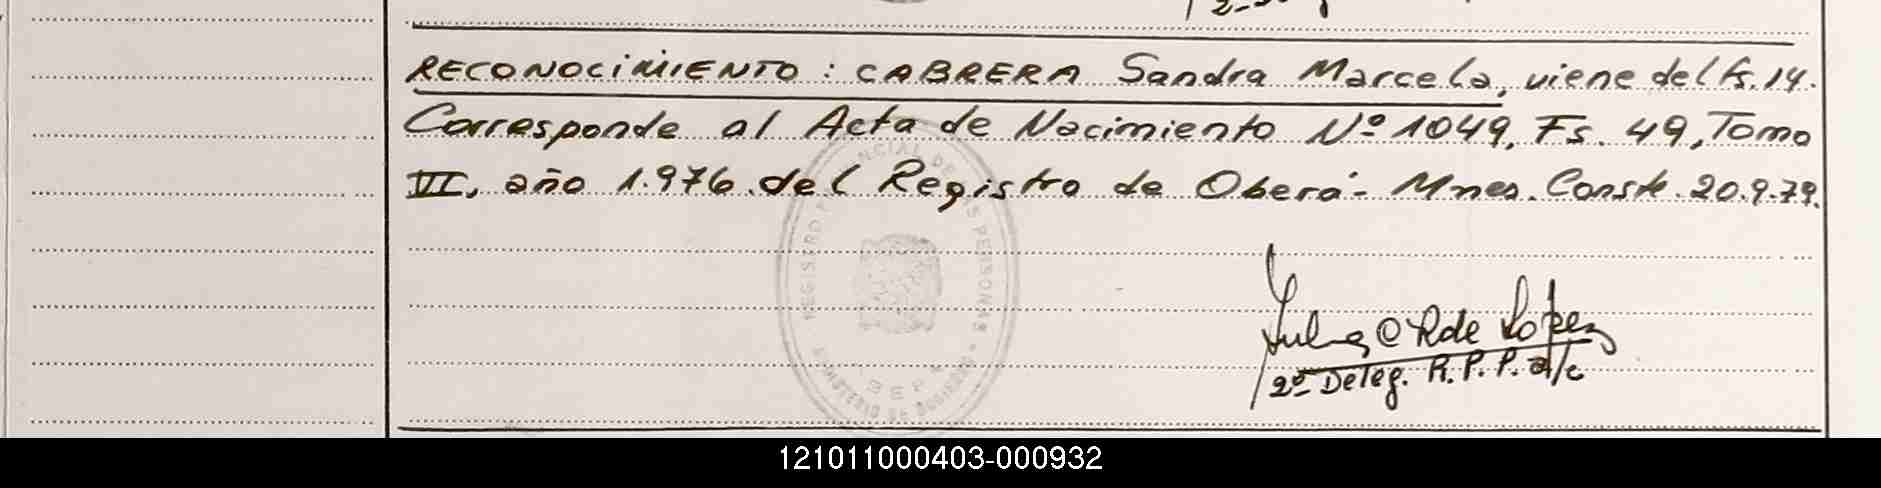 RECONOCIMIENTO : CABRERA Sandra Marcela, viene del fs. 14.
Corresponde al Acta de Nacimiento Nº 1049, Fs. 49, Tomo
VI, año 1.976. del Registro de Oberá - Mnes. Conste. 20.9.79.
REGISTRO PROVINCIAL DE LAS PERSONAS
MINISTERIO DE GOBIERNO
de Lopez
2º Deleg. R.P.P. a/c
121011000403-000932